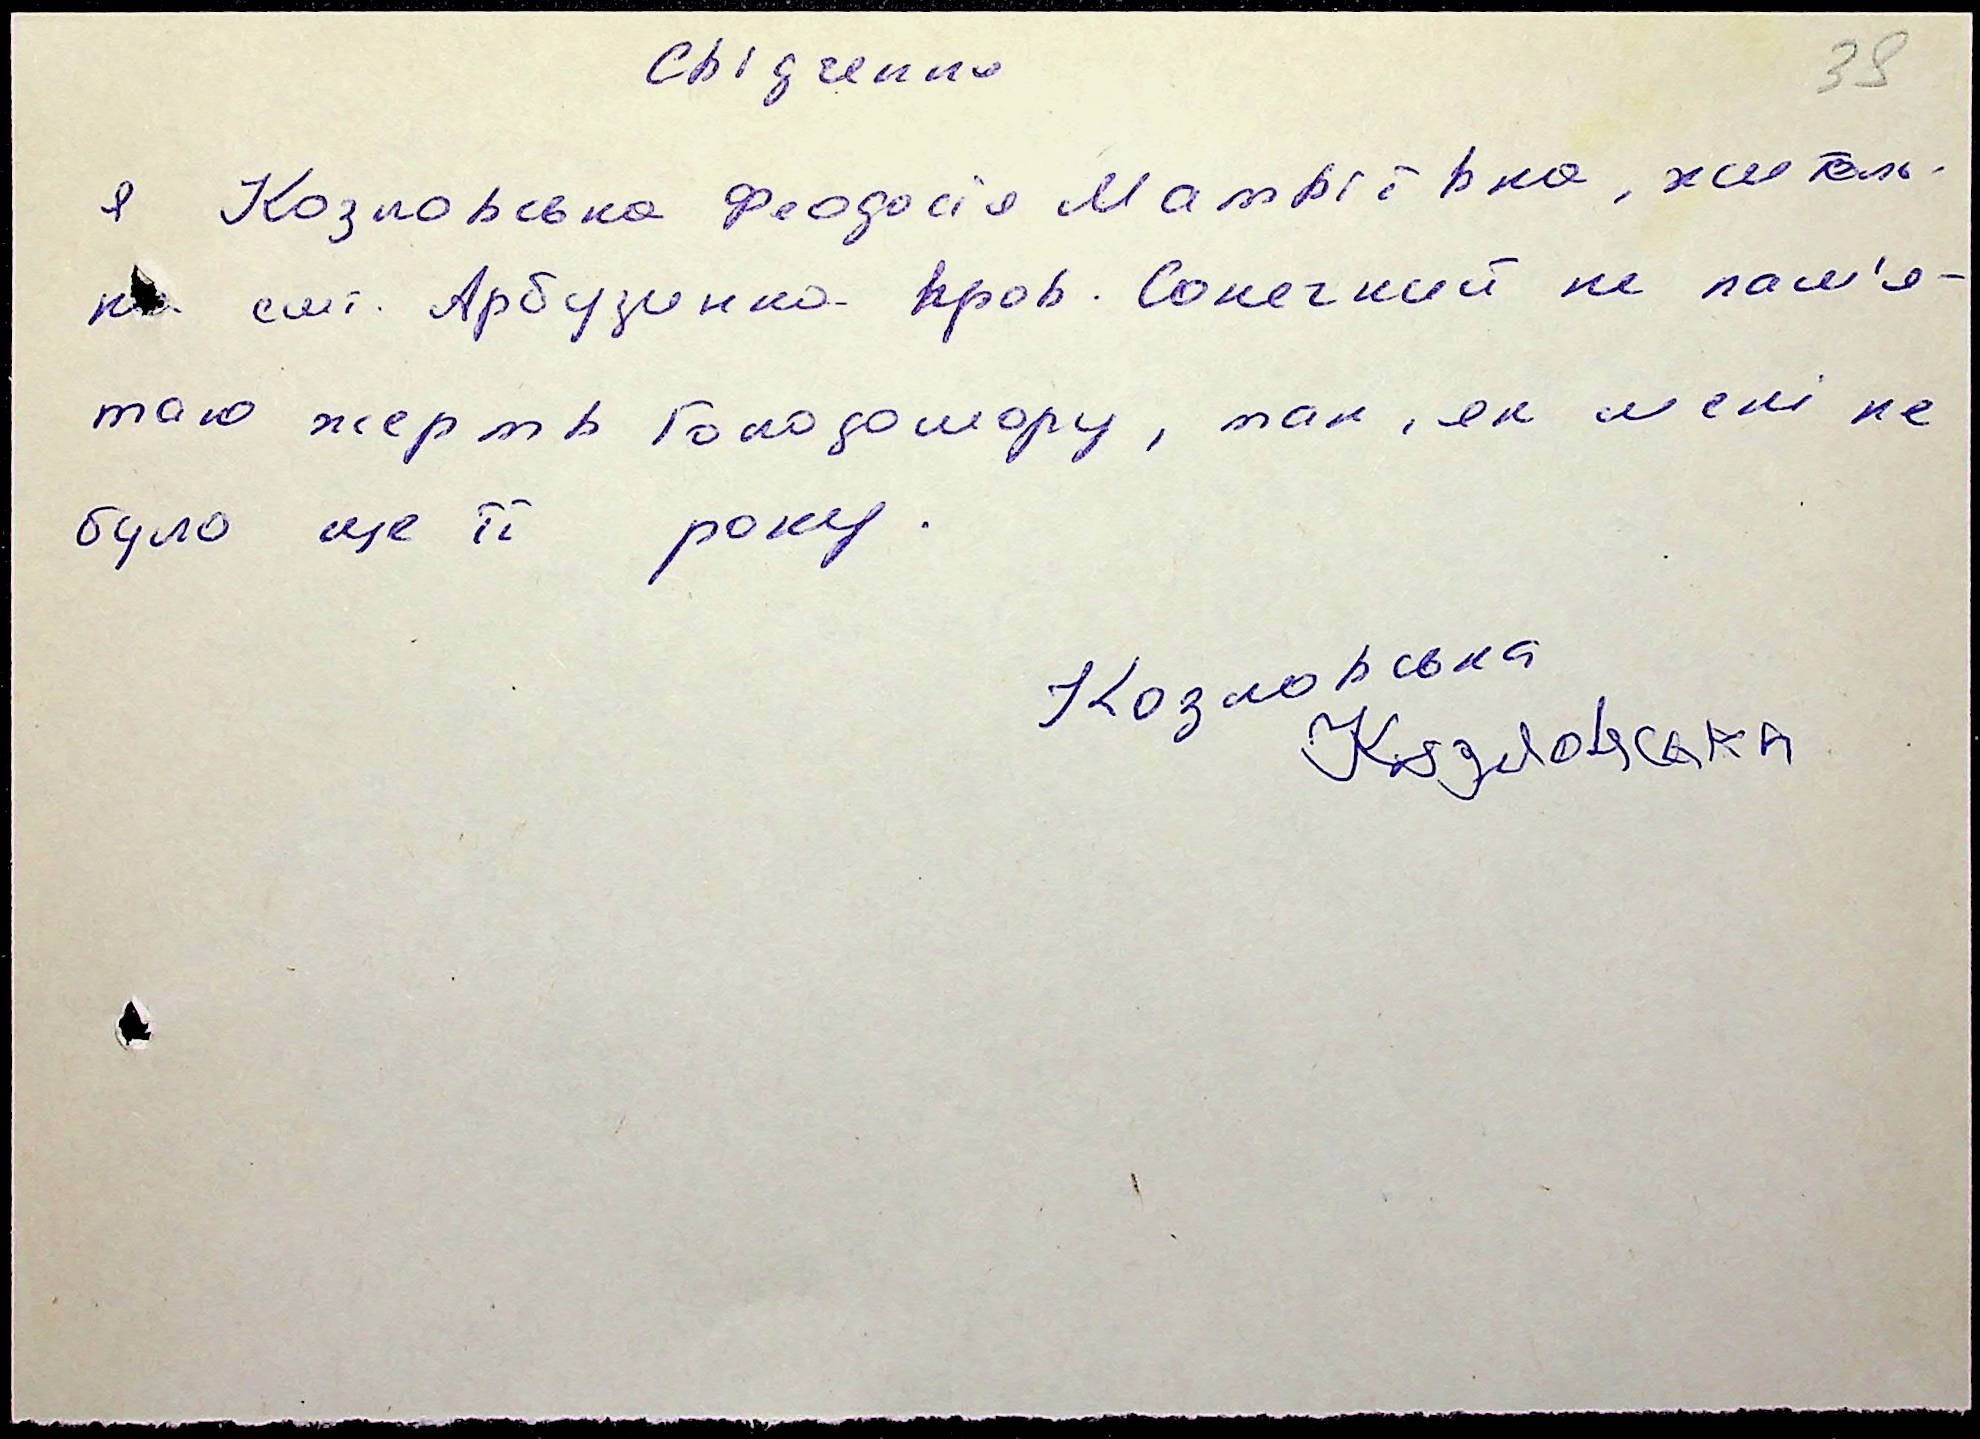 Свідчення
39
Я Козловська Феодосія Матвіївна, житель-
ка смт. Арбузинка пров. Сонячний не пам'я-
таю жертв Голодомору, так, як мені не
було ще її року.
Козловська
Козловська